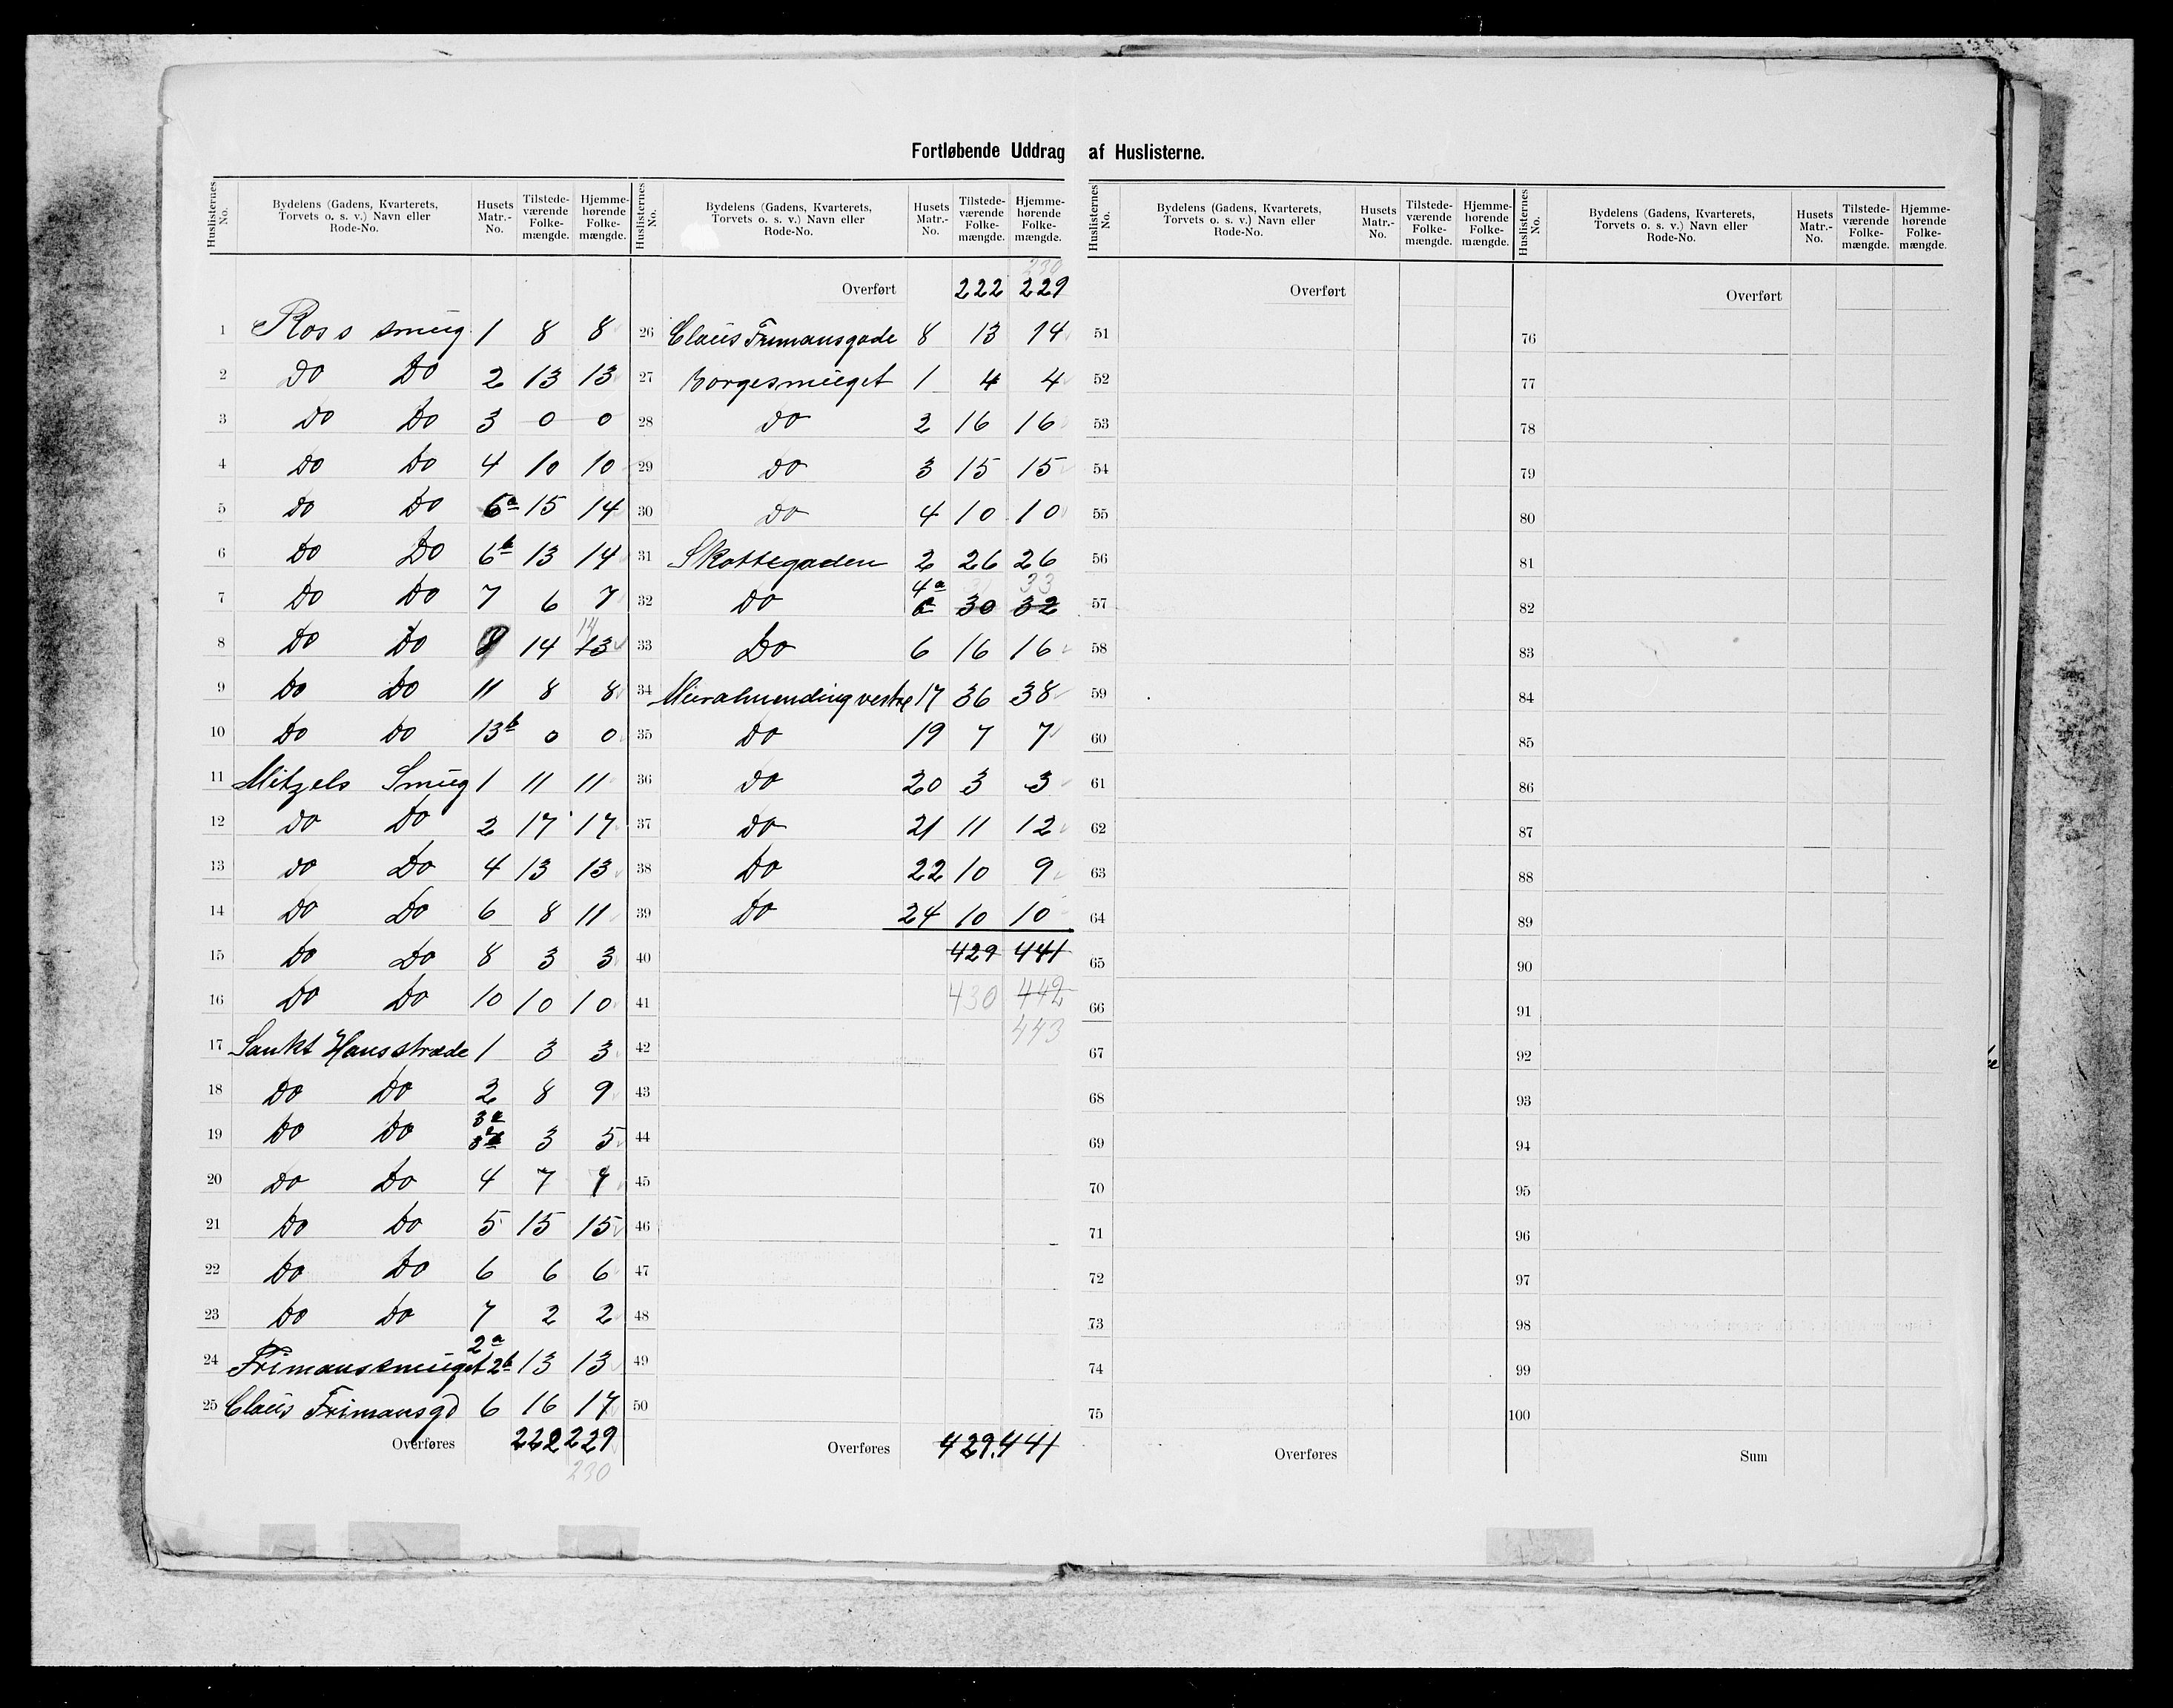 Fortløbende Uddrag af Huslisterne.
Huslisternes No. | Bydelens (Gadens, Kvarterets, Torvets o. s. v.) Navn eller Rode-No. | Husets Matr.-No. | Tilstede-værende Folke-mængde. | Hjemme-hørende Folke-mængde.
1 Ross smug 1 8 8
2 Do Do 2 13 13
3 Do Do 3 0 0
4 Do Do 4 10 10
5 Do Do 6a 15 14
6 Do Do 6b 13 14
7 Do Do 7 6 7
8 Do Do 14 13 14
9 Do Do 11 8 8
10 Do Do 13b 0 0
11 Mitzels Smug 1 11 11
12 Do Do 2 17 17
13 Do Do 4 13 13
14 Do Do 6 8 11
15 Do Do 8 3 3
16 Do Do 10 10 10
17 Sankt Hansstræde 1 3 3
18 Do Do 2 8 9
19 Do Do 3a 3 5
20 Do Do 4 7 7
21 Do Do 5 15 15
22 Do Do 6 6 6
23 Do Do 7 2 2
24 Frimanssmuget 2a 2b 13 13
25 Claus Frimansgd 6 16 17
Overføres 222 229
230
Huslisternes No. | Bydelens (Gadens, Kvarterets, Torvets o. s. v.) Navn eller Rode-No. | Husets Matr.-No. | Tilstede-værende Folke-mængde. | Hjemme-hørende Folke-mængde.
230
Overført 222 229
26 Claus Frimansgade 8 13 14
27 Borgesmuget 1 4 4
28 Do 2 16 16
29 Do 3 15 15
30 Do 4 10 10
31 Skottegaden 2 26 26
32 Do 4a 30 32 33
33 Do 6 16 16
34 Muralmending vestre 17 36 38
35 Do 19 7 7
36 Do 20 3 3
37 Do 21 11 12
38 Do 22 10 9
39 Do 24 10 10
40 429 441
41 430 442
443
42
43
44
45
46
47
48
49
50
Overføres 429 441
Huslisternes No. | Bydelens (Gadens, Kvarterets, Torvets o. s. v.) Navn eller Rode-No. | Husets Matr.-No. | Tilstede-værende Folke-mængde. | Hjemme-hørende Folke-mængde.
Overført
51
52
53
54
55
56
57
58
59
60
61
62
63
64
65
66
67
68
69
70
71
72
73
74
75
Overføres
Huslisternes No. | Bydelens (Gadens, Kvarterets, Torvets o. s. v.) Navn eller Rode-No. | Husets Matr.-No. | Tilstede-værende Folke-mængde. | Hjemme-hørende Folke-mængde.
Overført
76
77
78
79
80
81
82
83
84
85
86
87
88
89
90
91
92
93
94
95
96
97
98
99
100
Sum